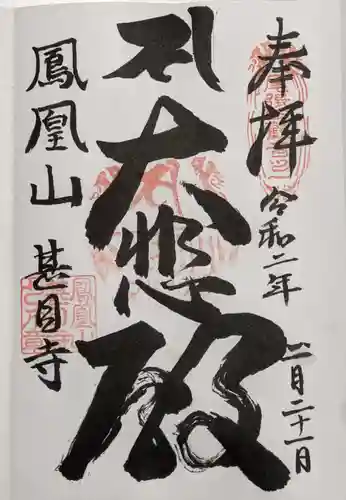 奉拝
令和二年 二月二十一日
大悲殿
鳳凰山 甚目寺